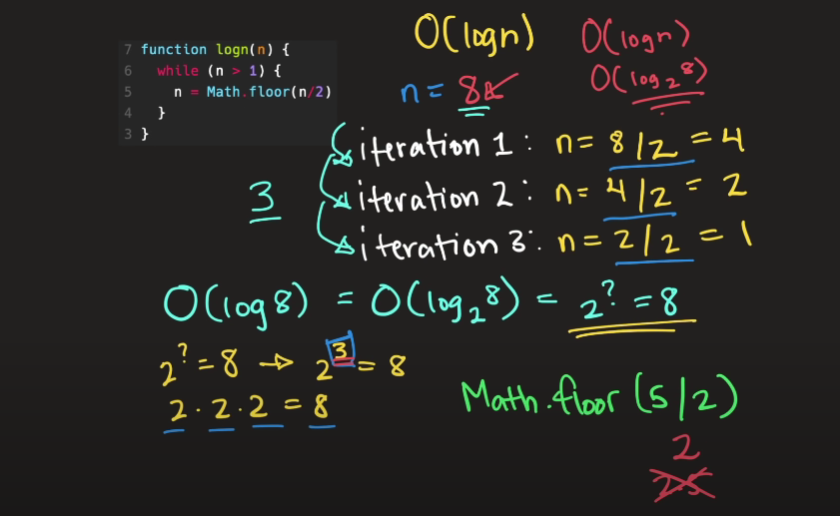 7 function logn(n) {
6 while (n > 1) {
5 n = Math.floor(n/2)
4 }
3 }
O(logn)
O(logn)
O(log₂8)
n = 8
iteration 1: n = 8/2 = 4
iteration 2: n = 4/2 = 2
iteration 3: n = 2/2 = 1
3
O(log8) = O(log₂8) = 2^? = 8
2^? = 8 → 2^3 = 8
2 · 2 · 2 = 8
Math.floor(5/2)
2
2.5